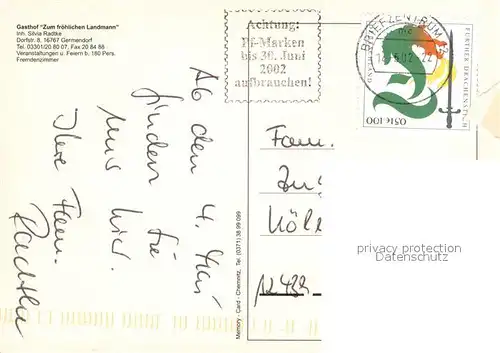 Gasthof "Zum fröhlichen Landmann"
Inh. Silvia Radtke
Dorfstr. 8, 16767 Germendorf
Tel. 03301/20 80 07, Fax 20 84 88
Veranstaltungen u. Feiern b. 180 Pers.
Fremdenzimmer
Achtung:
Pf-Marken
bis 30. Juni
2002
aufbrauchen!
BRIEFZENTRUM
FURTHER DRACHENSTICH
0,51€ 100
Ab den 4. Mai
finden Sie
uns hier.
Ihre Fam.
Radtke
Memory - Card - Chemnitz, Tel. (0371) 38 99 099
Fam.
Köl
12489
privacy protection
Datenschutz